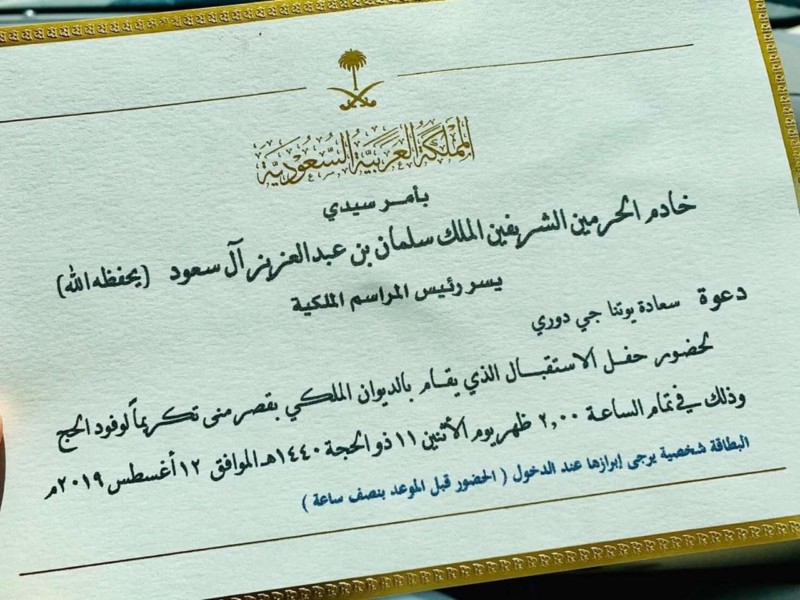 المملكة العربية السعودية
بأمر سيدي
خادم الحرمين الشريفين الملك سلمان بن عبدالعزيز آل سعود (يحفظه الله)
يسر رئيس المراسم الملكية
دعوة سعادة يوتنا جي دوري
لحضور حفل الاستقبال الذي يقام بالديوان الملكي بقصر منى تكريماً لوفود الحج
وذلك في تمام الساعة ٢,٠٠ ظهر يوم الأثنين ١١ ذو الحجة ١٤٤٠هـ الموافق ١٢ أغسطس ٢٠١٩م
البطاقة شخصية يرجى إبرازها عند الدخول ( الحضور قبل الموعد بنصف ساعة )